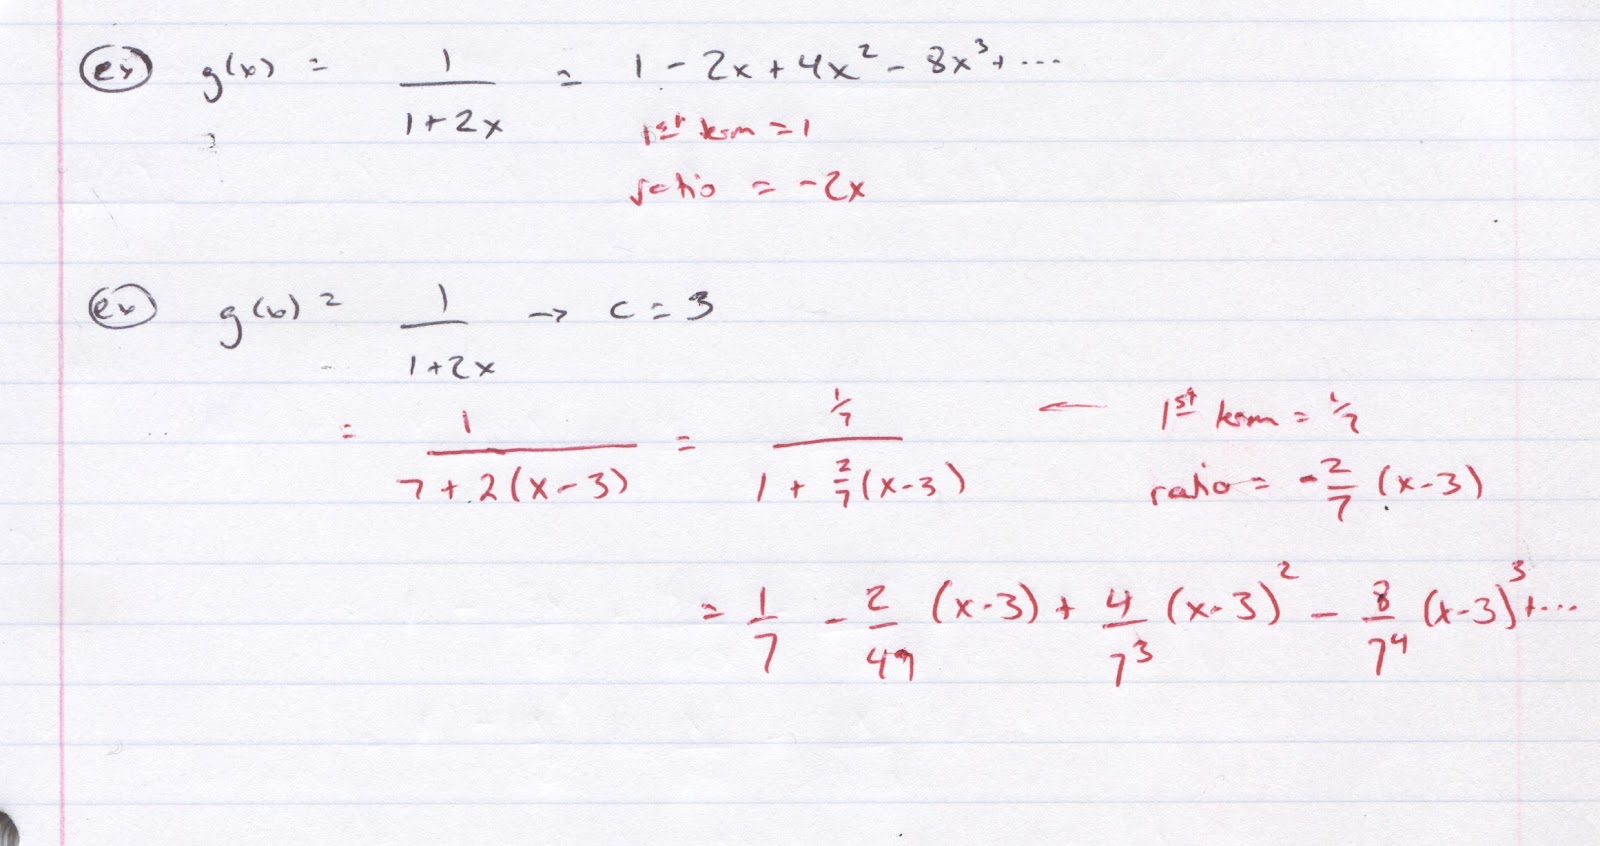 ex g(x) = 1/(1+2x) = 1 - 2x + 4x² - 8x³ + ...
1st term = 1
ratio = -2x
ex g(x) = 1/(1+2x) → c = 3
= 1/(7+2(x-3)) = (1/7)/(1 + 2/7 (x-3)) ← 1st term = 1/7
ratio = -2/7 (x-3)
= 1/7 - 2/49 (x-3) + 4/7³ (x-3)² - 8/7⁴ (x-3)³ + ...